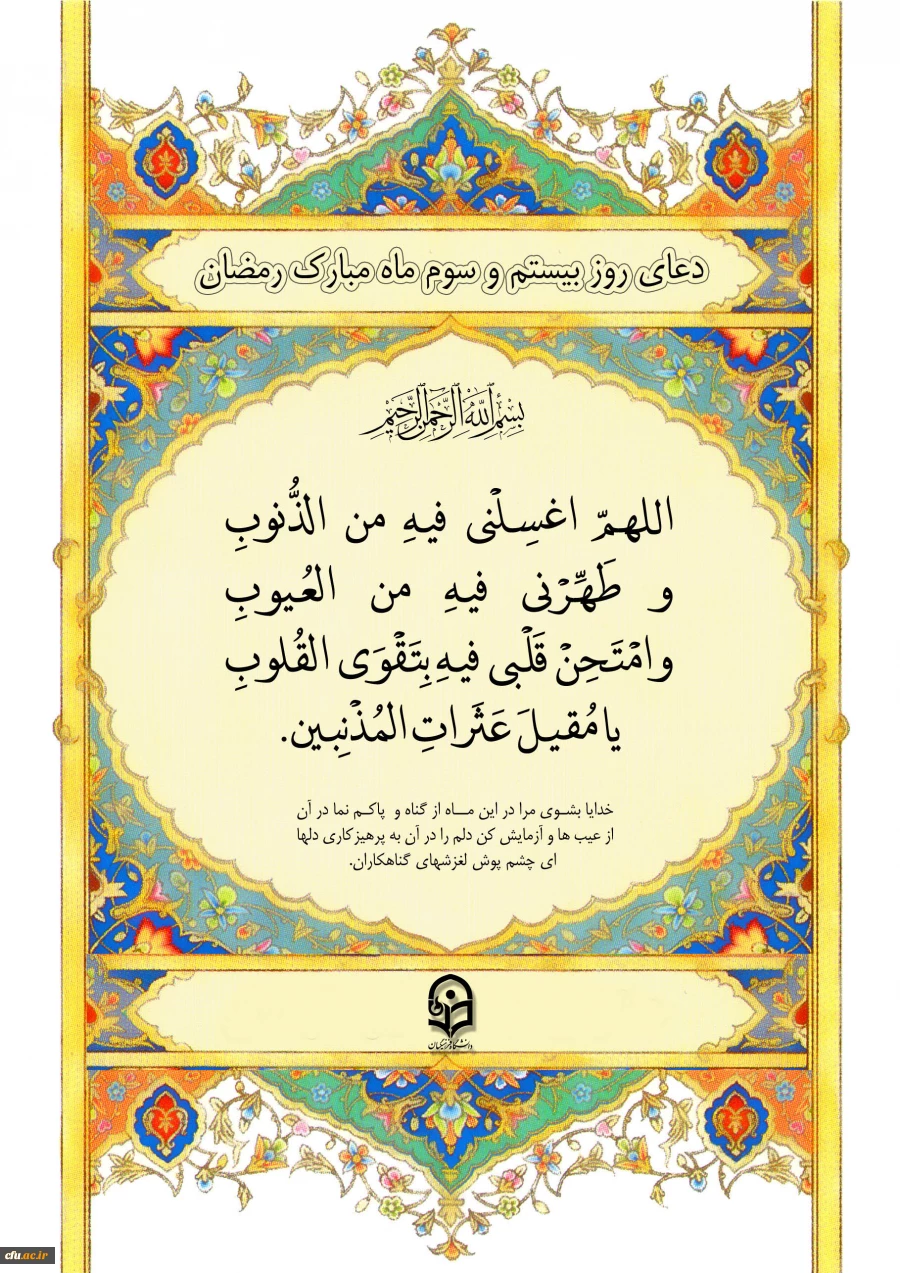 دعای روز بیستم و سوم ماه مبارک رمضان
بِسْمِ اللَّهِ الرَّحْمَنِ الرَّحِيمِ
اللهمّ اغسِلْنی فیهِ من الذُّنوبِ
و طَهِّرْنی فیهِ من العُیوبِ
وامْتَحِنْ قَلْبی فیهِ بِتَقْوَی القُلوبِ
یا مُقیلَ عَثَراتِ المُذْنِبین.
خدایا بشـوی مرا در این مـــاه از گناه و پاکـم نما در آن
از عیب ها و آزمایش کن دلم را در آن به پرهیزکاری دلها
ای چشم پوش لغزشهای گناهکاران.
دانشگاه فرهنگیان
cfu.ac.ir